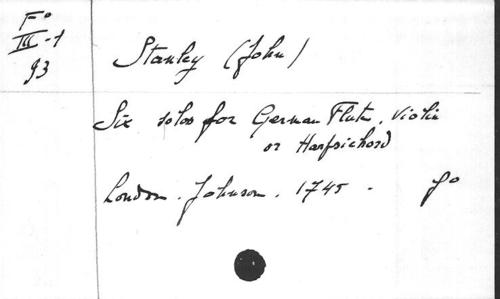 F°
III-1
93
Stanley (John)
Six solos for German Flute, violin
or Harpsichord
London. Johnson. 1745. f°